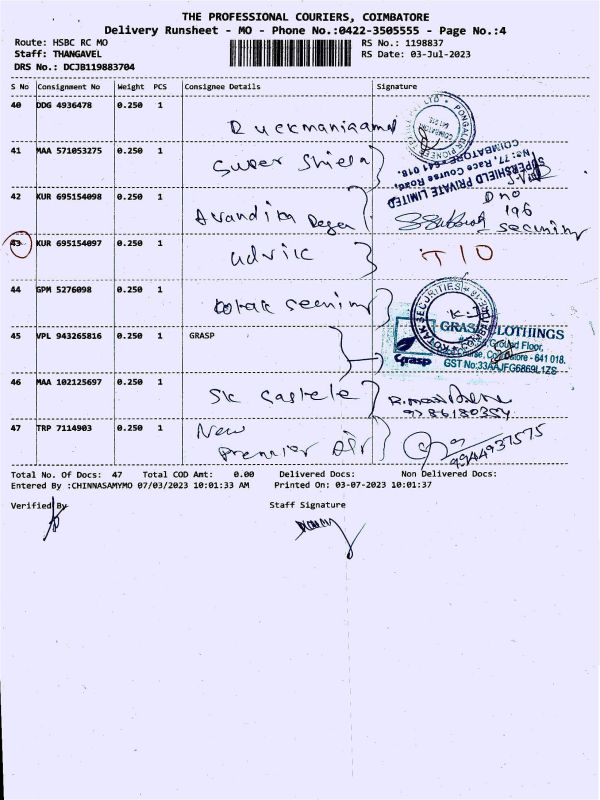 THE PROFESSIONAL COURIERS, COIMBATORE
Delivery Runsheet - MO - Phone No.:0422-3505555 - Page No.:4
Route: HSBC RC MO
RS No.: 1198837
Staff: THANGAVEL
RS Date: 03-Jul-2023
DRS No.: DCJB119883704
S No Consignment No Weight PCS Consignee Details Signature
40 DDG 4936478 0.250 1
41 MAA 571053275 0.250 1 Super Shield
SUPERSHIELD PRIVATE LIMITED
No: 77, Race Course Road,
COIMBATORE - 641 018.
42 KUR 695154098 0.250 1 Avandika
D no
196
43 KUR 695154097 0.250 1 udvik T I O
44 GPM 5276098 0.250 1 kotak
KOTAK SECURITIES
45 VPL 943265816 0.250 1 GRASP
GRASP CLOTHINGS
Ground Floor,
Course, Coimbatore - 641 018.
GST No:33AAJFG6869L1ZS
Grasp
46 MAA 102125697 0.250 1
9786180354
47 TRP 7114903 0.250 1 New
Premier
9944937575
Total No. Of Docs: 47 Total COD Amt: 0.00 Delivered Docs: Non Delivered Docs:
Entered By :CHINNASAMYMO 07/03/2023 10:01:33 AM Printed On: 03-07-2023 10:01:37
Verified By
Staff Signature